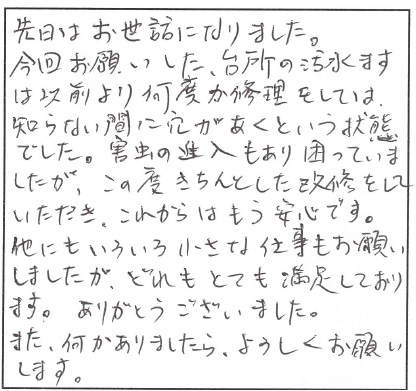 先日はお世話になりました。
今回お願いした、台所の汚水ます
は以前より何度か修理をしては、
知らない間に穴があくという状態
でした。害虫の進入もあり困っていま
したが、この度きちんとした改修をして
いただき、これからはもう安心です。
他にもいろいろ小さな仕事もお願い
しましたが、どれもとても満足しており
ます。ありがとうございました。
また、何かありましたら、よろしくお願い
します。